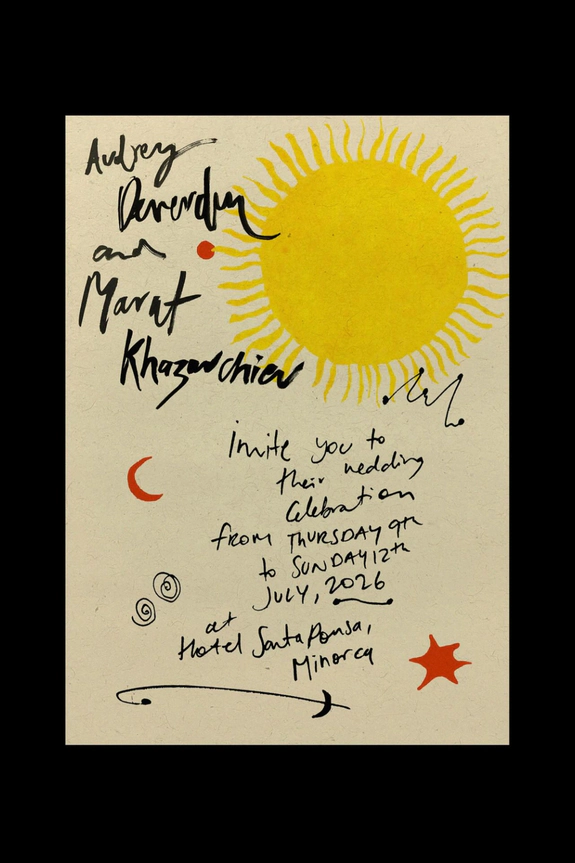 Audrey
Deverdun
and
Marat
Khazarchiev
Invite you to
their wedding
Celebration
from THURSDAY 9th
to SUNDAY 12th
JULY, 2026
at
Hotel Santa Ponsa,
Minorca